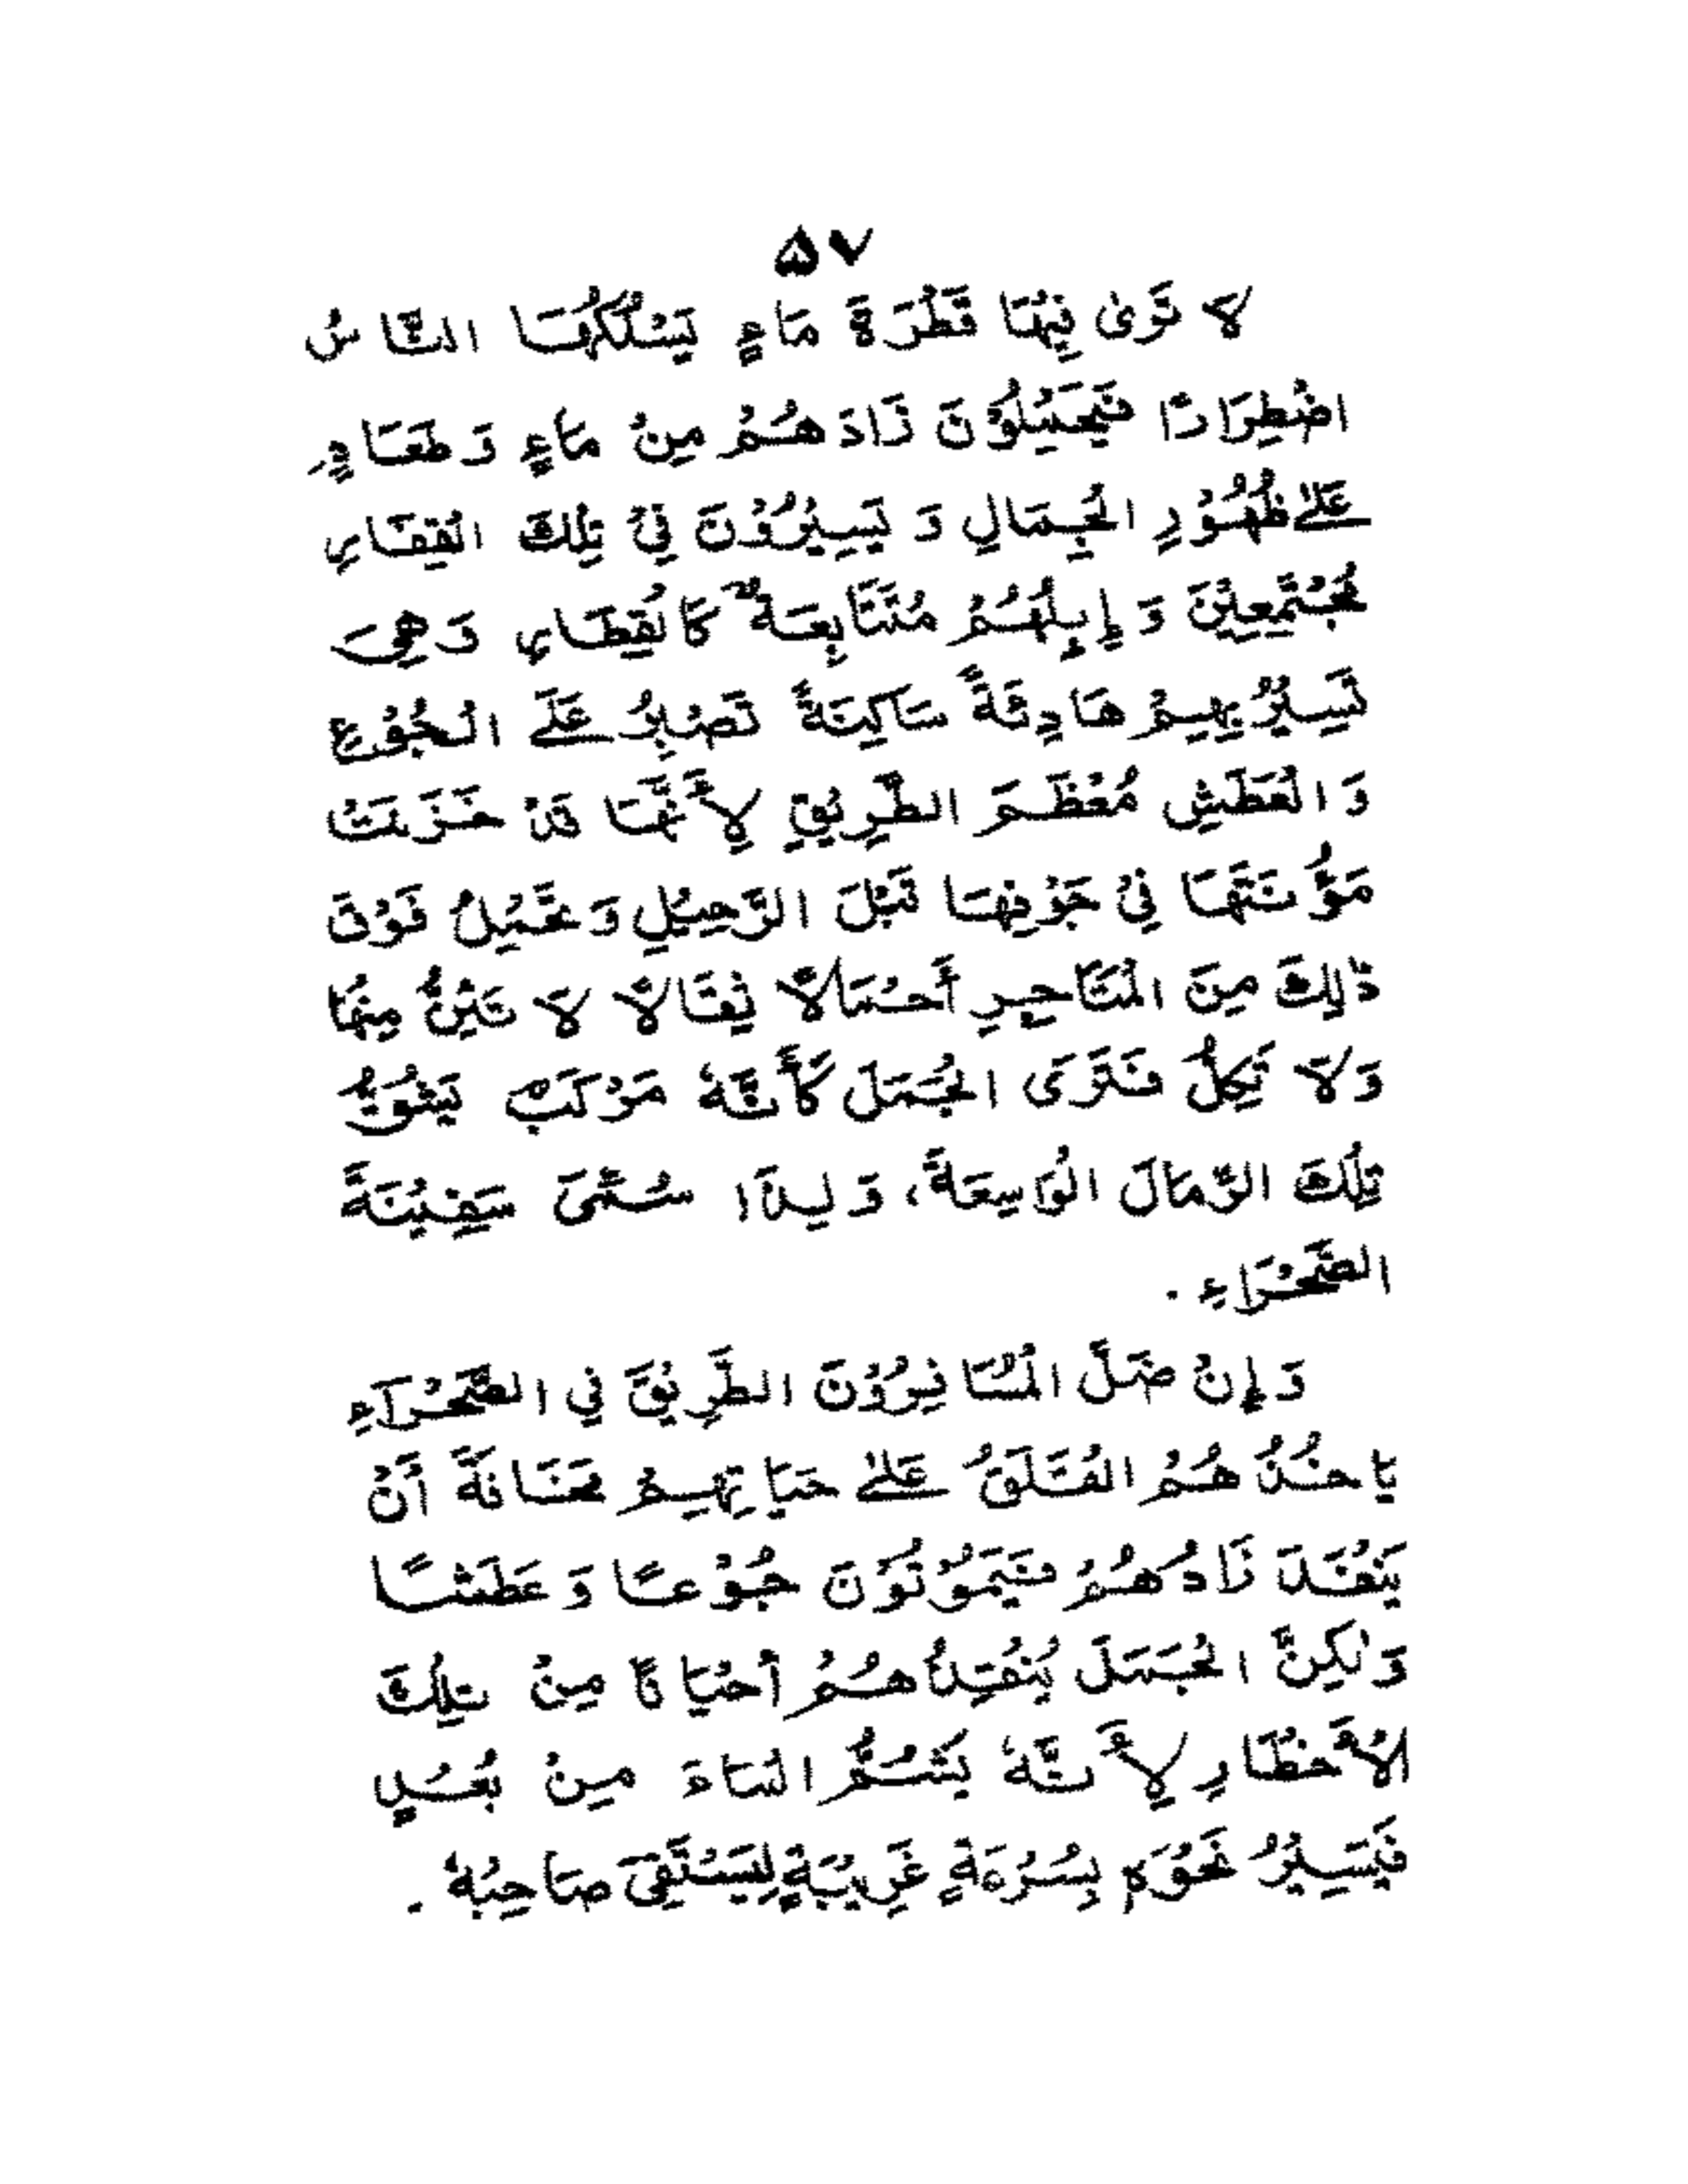 ۵۷
لَا تَرٰى فِيْهَا قَطْرَةَ مَاءٍ يَسْلُكُهَا النَّاسُ
اضْطِرَارًا فَيَحْمِلُوْنَ زَادَهُمْ مِنْ مَاءٍ وَطَعَامٍ
عَلٰى ظُهُوْرِ الْجِمَالِ وَيَسِيْرُوْنَ فِيْ تِلْكَ الْقِفَارِ
مُجْتَمِعِيْنَ وَإِبِلُهُمْ مُتَتَابِعَةٌ كَالْقِطَارِ وَهِيَ
تَسِيْرُ بِهِمْ هَادِئَةً سَاكِنَةً تَصْبِرُ عَلَى الْجُوْعِ
وَالْعَطَشِ مُعْظَمَ الطَّرِيْقِ لِأَنَّهَا قَدْ خَزَنَتْ
مَؤُنَتَهَا فِيْ جَوْفِهَا قَبْلَ الرَّحِيْلِ وَتَحْمِلُ فَوْقَ
ذٰلِكَ مِنَ الْمَتَاجِرِ أَحْمَالًا ثِقَالًا لَا تَئِنُّ مِنْهَا
وَلَا تَكِلُّ فَتَرَى الْجَمَلَ كَأَنَّهٗ مَرْكَبٌ يَشُقُّ
تِلْكَ الرِّمَالَ الْوَاسِعَةَ، وَلِذَا سُمِّيَ سَفِيْنَةَ
الصَّحْرَاءِ.
وَإِنْ ضَلَّ الْمُسَافِرُوْنَ الطَّرِيْقَ فِي الصَّحْرَاءِ
يَأْخُذُهُمُ الْقَلَقُ عَلٰى حَيَاتِهِمْ مَخَافَةَ أَنْ
يَنْفَدَ زَادُهُمْ فَيَمُوْتُوْنَ جُوْعًا وَعَطَشًا
وَلٰكِنَّ الْجَمَلَ يُنْقِذُهُمْ أَحْيَانًا مِنْ تِلْكَ
الْأَخْطَارِ لِأَنَّهٗ يَشُمُّ الْمَاءَ مِنْ بُعْدٍ
فَيَسِيْرُ نَحْوَهٗ بِسُرْعَةٍ غَرِيْبَةٍ لِيَسْتَقِيَ صَاحِبُهٗ.